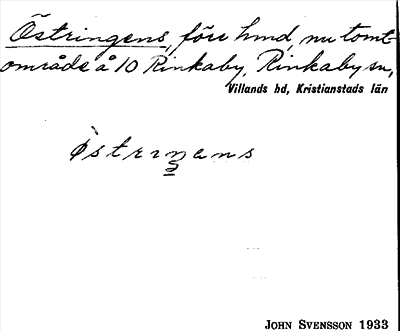 Östringens, före hmd, nu tomt-
område å 10 Rinkaby, Rinkaby sn,
Villands hd, Kristianstads län
östrıŋens
JOHN SVENSSON 1933